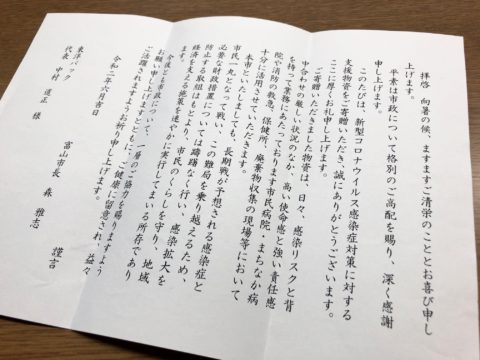 拝啓　向暑の候、ますますご清栄のこととお喜び申し
上げます。
平素は市政について格別のご高配を賜り、深く感謝
申し上げます。
このたびは、新型コロナウイルス感染症対策に対する
支援物資をご寄贈いただき、誠にありがとうございます。
ここに厚くお礼申し上げます。
ご寄贈いただきました物資は、日々、感染リスクと背
中合わせの厳しい状況のなか、高い使命感と強い責任感
を持って業務にあたっております市民病院・まちなか病
院や消防の救急、保健所、廃棄物収集の現場等において
十分に活用させていただきます。
本市といたしましても、長期戦が予想される感染症と
市民一丸となって戦い、この難局を乗り越えるため、
必要な財政措置については躊躇なく行い、感染拡大を
防止する取組はもとより、市民のくらしを守り、地域
経済を支える施策を速やかに実行してまいる所存であり
ます。
今後とも市政に対して、一層のご協力を賜りますよう
お願い申し上げますとともに、ご健康に留意され、益々
ご活躍されますようお祈り申し上げます。
謹言
令和二年六月吉日
富山市長　森　雅志
東洋パック
代表　中村　道正　様